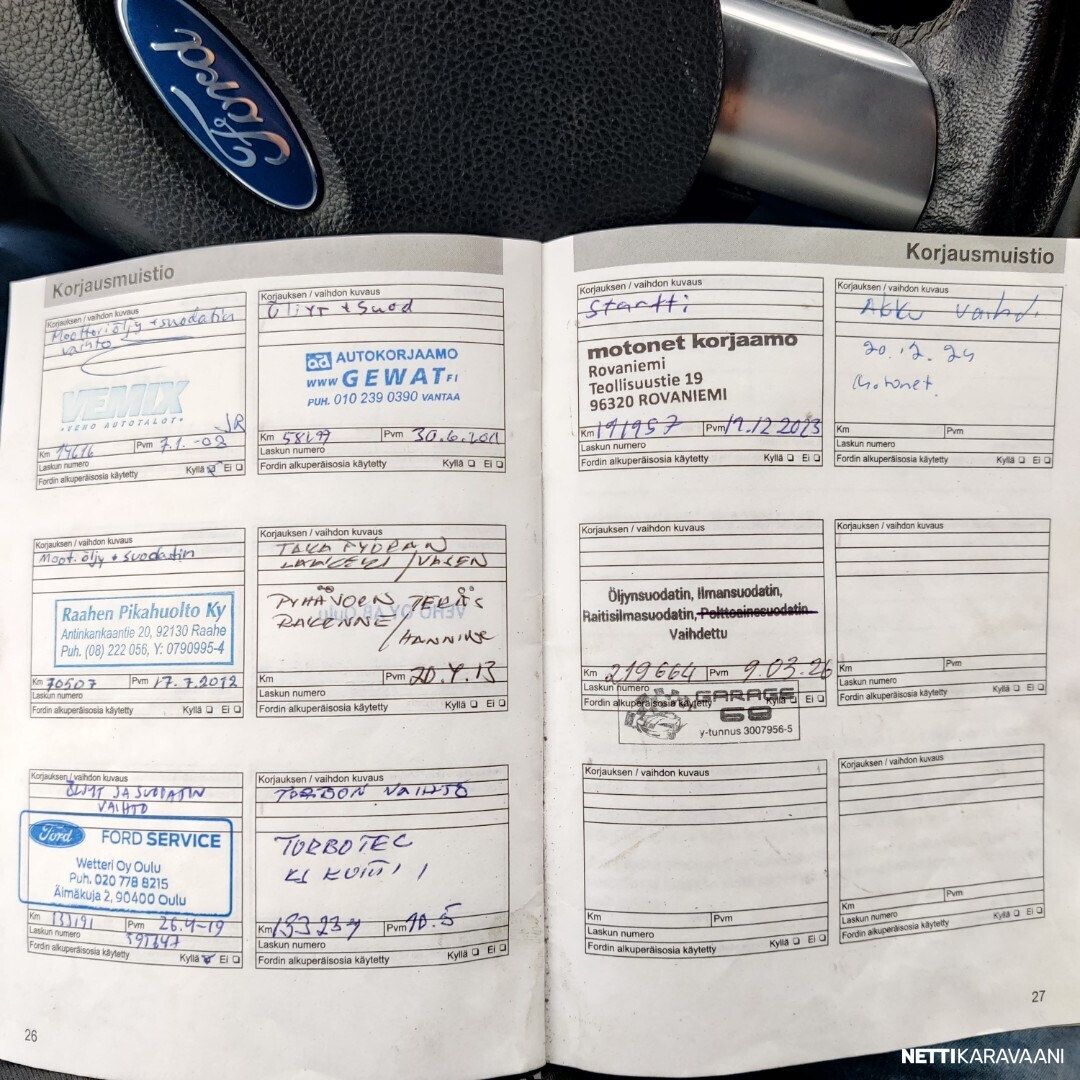 Ford
Korjausmuistio
Korjauksen / vaihdon kuvaus
Moottoriöljy + suodatin
vaihto
VEMIX
-VEHO AUTOTALOT-
JR
Km Pvm 7.1.-08
Laskun numero
Fordin alkuperäisosia käytetty Kyllä Ei
Korjauksen / vaihdon kuvaus
Öljyt + Suod
ad AUTOKORJAAMO
www.GEWAT.FI
PUH. 010 239 0390 VANTAA
Km Pvm
Laskun numero
Fordin alkuperäisosia käytetty Kyllä Ei
Korjauksen / vaihdon kuvaus
Moot. öljy + suodatin
Raahen Pikahuolto Ky
Antinkankaantie 20, 92130 Raahe
Puh. (08) 222 056, Y: 0790995-4
Km 70507 Pvm 17.7.2012
Laskun numero
Fordin alkuperäisosia käytetty Kyllä Ei
Korjauksen / vaihdon kuvaus
TAKAPYÖRÄN
LAAKERI /VASEN
PYHÄJOEN TERÄS
RAKENNE
VEHO OY AB Oulu
Km Pvm 20.4.13
Laskun numero
Fordin alkuperäisosia käytetty Kyllä Ei
Korjauksen / vaihdon kuvaus
ÖLJYT JA SUODATIN
VAIHTO
Ford FORD SERVICE
Wetteri Oy Oulu
Puh. 020 778 8215
Äimäkuja 2, 90400 Oulu
Km 133191 Pvm 26.4-19
Laskun numero 591647
Fordin alkuperäisosia käytetty Kyllä Ei
Korjauksen / vaihdon kuvaus
TURBON VAIHTO
TURBOTEC
KS KUITTI
Km Pvm 10.5
Laskun numero
Fordin alkuperäisosia käytetty Kyllä Ei
26
Korjausmuistio
Korjauksen / vaihdon kuvaus
Startti
motonet korjaamo
Rovaniemi
Teollisuustie 19
96320 ROVANIEMI
Km 191957 Pvm 19.12.2023
Laskun numero
Fordin alkuperäisosia käytetty Kyllä Ei
Korjauksen / vaihdon kuvaus
Akku vaihd.
20.12.24
Motonet.
Km Pvm
Laskun numero
Fordin alkuperäisosia käytetty Kyllä Ei
Korjauksen / vaihdon kuvaus
Öljynsuodatin, Ilmansuodatin,
Raitisilmasuodatin, Polttoainesuodatin
Vaihdettu
Km 219664 Pvm 9.03.26
Laskun numero
Fordin alkuperäisosia käytetty Kyllä Ei
GARAGE
68
y-tunnus 3007956-5
Korjauksen / vaihdon kuvaus
Km Pvm
Laskun numero
Fordin alkuperäisosia käytetty Kyllä Ei
Korjauksen / vaihdon kuvaus
Km Pvm
Laskun numero
Fordin alkuperäisosia käytetty Kyllä Ei
Korjauksen / vaihdon kuvaus
Km Pvm
Laskun numero
Fordin alkuperäisosia käytetty Kyllä Ei
27
NETTIKARAVAANI